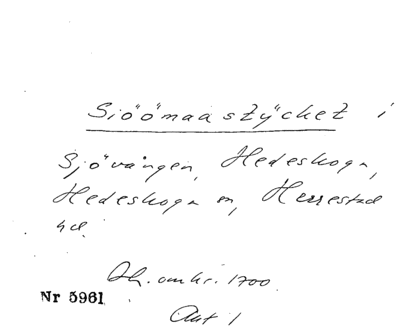 Siöömaastÿcket i
Sjövången, Hedeskoga,
Hedeskoga sn, Herrestad
hd.
omkr. 1700
Nr 5961
Akt 1